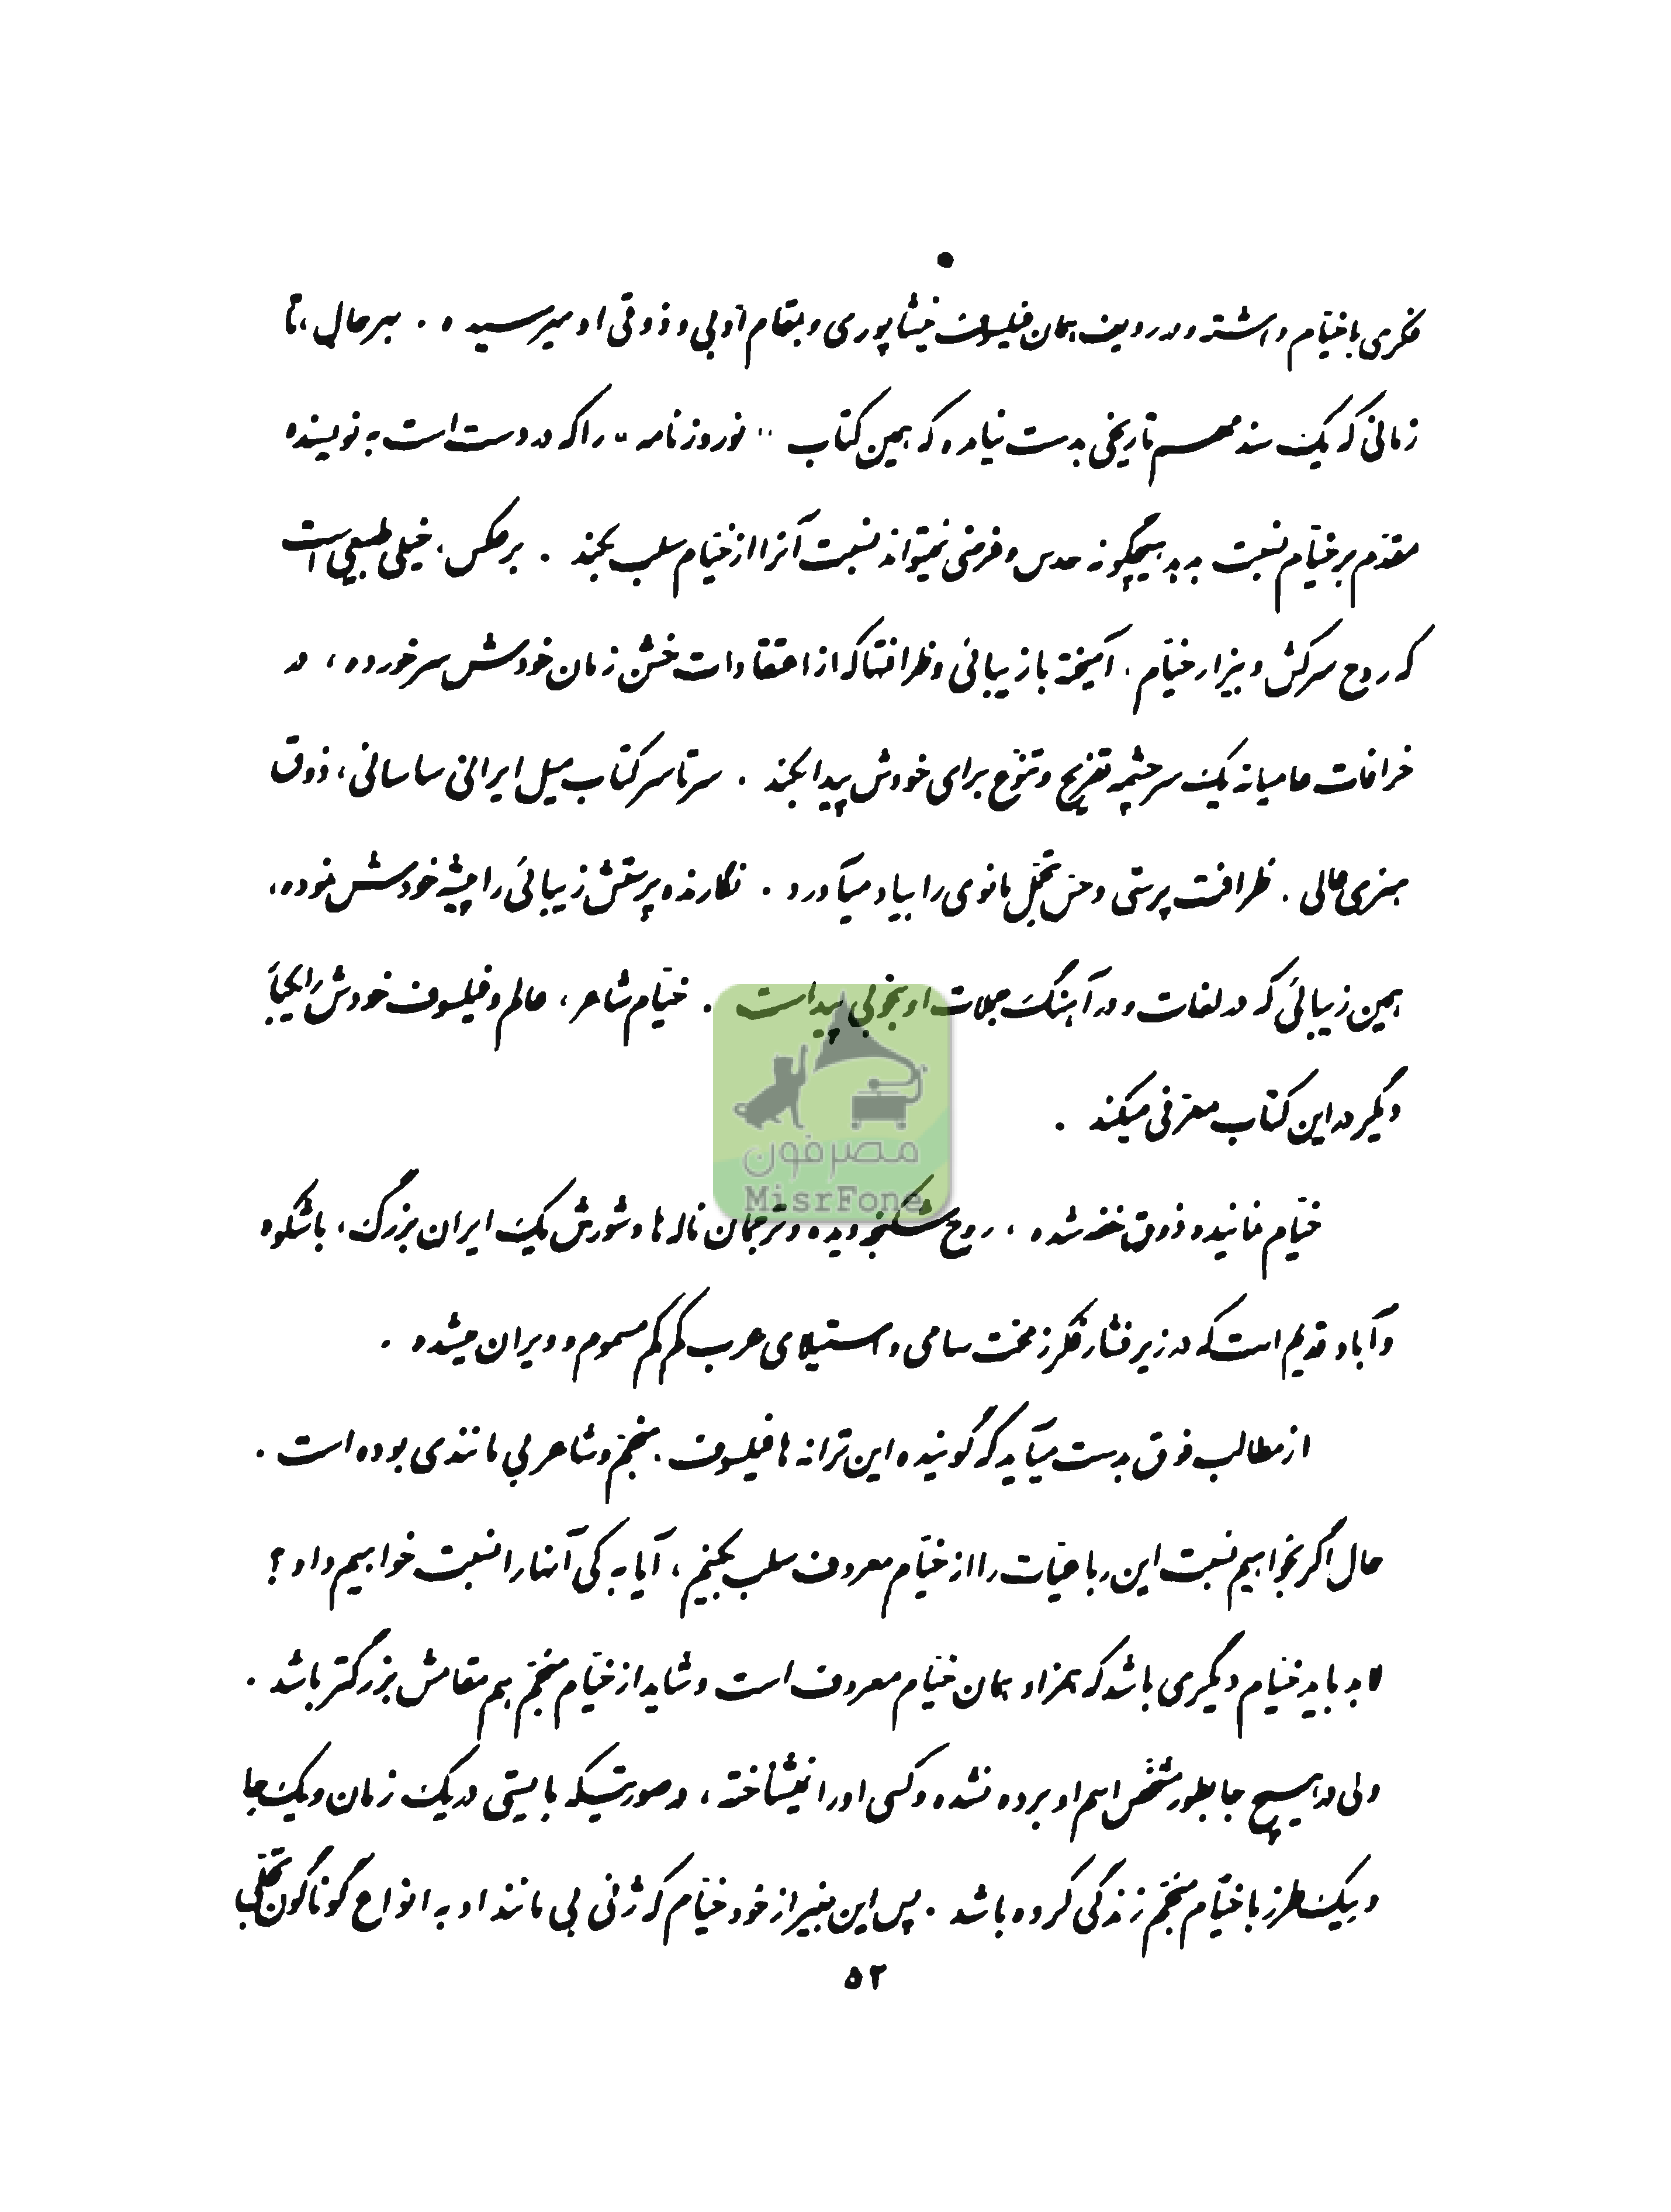 فکری با خیّام داشته و در ردیف همان فیلسوف نیشابوری و بمقام ادبی و ذوقی او میرسیده . بهرحال، تا
زمانی که یک سند مهم تاریخی بدست نیامده که همین کتاب "نوروزنامه" را که در دست است به نویسنده
مقدّم بر خیّام نسبت بدهد هیچگونه حدس و فرضی نمیتواند نسبت آنرا از خیّام سلب بکند . برعکس، خیلی طبیعی است
که روح سرکش و بیزار خیّام، آمیخته با زیبائی و ظرافتها که از اعتقادات خشن زمان خودش سر خورده، در
خرافات عامیانه یک سرچشمه تفریح و تنوّع برای خودش پیدا بکند . سرتاسر کتاب میل ایرانی ساسانی، ذوق
هنری عالی . ظرافت پرستی و حسّ تجمّل مانوی را بیاد میآورد . نگارنده پرستش زیبائی را پیشه خودش نموده،
همین زیبائی که در لغات و در آهنگ جملات او بخوبی پیداست . خیّام شاعر، عالم و فیلسوف خودش را یکبار
دیگر در این کتاب معرّفی میکند .
خیّام نماینده ذوق خفه شده ، روح شکنجه دیده و ترجمان ناله ها و شورش یک ایران بزرگ، باشکوه
و آباد قدیم است که در زیر فشار فکر زمخت سامی و استیلای عرب کم کم مسموم و ویران میشده .
از مطالب فوق بدست میآید که گوینده این ترانه ها فیلسوف، منجّم و شاعر بی مانندی بوده است .
حال اگر بخواهیم نسبت این رباعیّات را از خیّام معروف سلب بکنیم، آیا به کی آنها را نسبت خواهیم داد ؟
لابد باید خیّام دیگری باشد که همزاد همان خیّام معروف است و شاید از خیّام منجّم هم مقامش بزرگتر باشد .
ولی در هیچ جا بطور مشخّص اسم او برده نشده و کسی او را نمیشناخته، در صورتیکه بایستی در یک زمان و یک جا
و بیک طرز با خیّام منجّم زندگی کرده باشد . پس این بغیر از خود خیّام که ژنی بی مانند او به انواع گوناگون تجلّی
۵۲
مصرفون
MisrFone